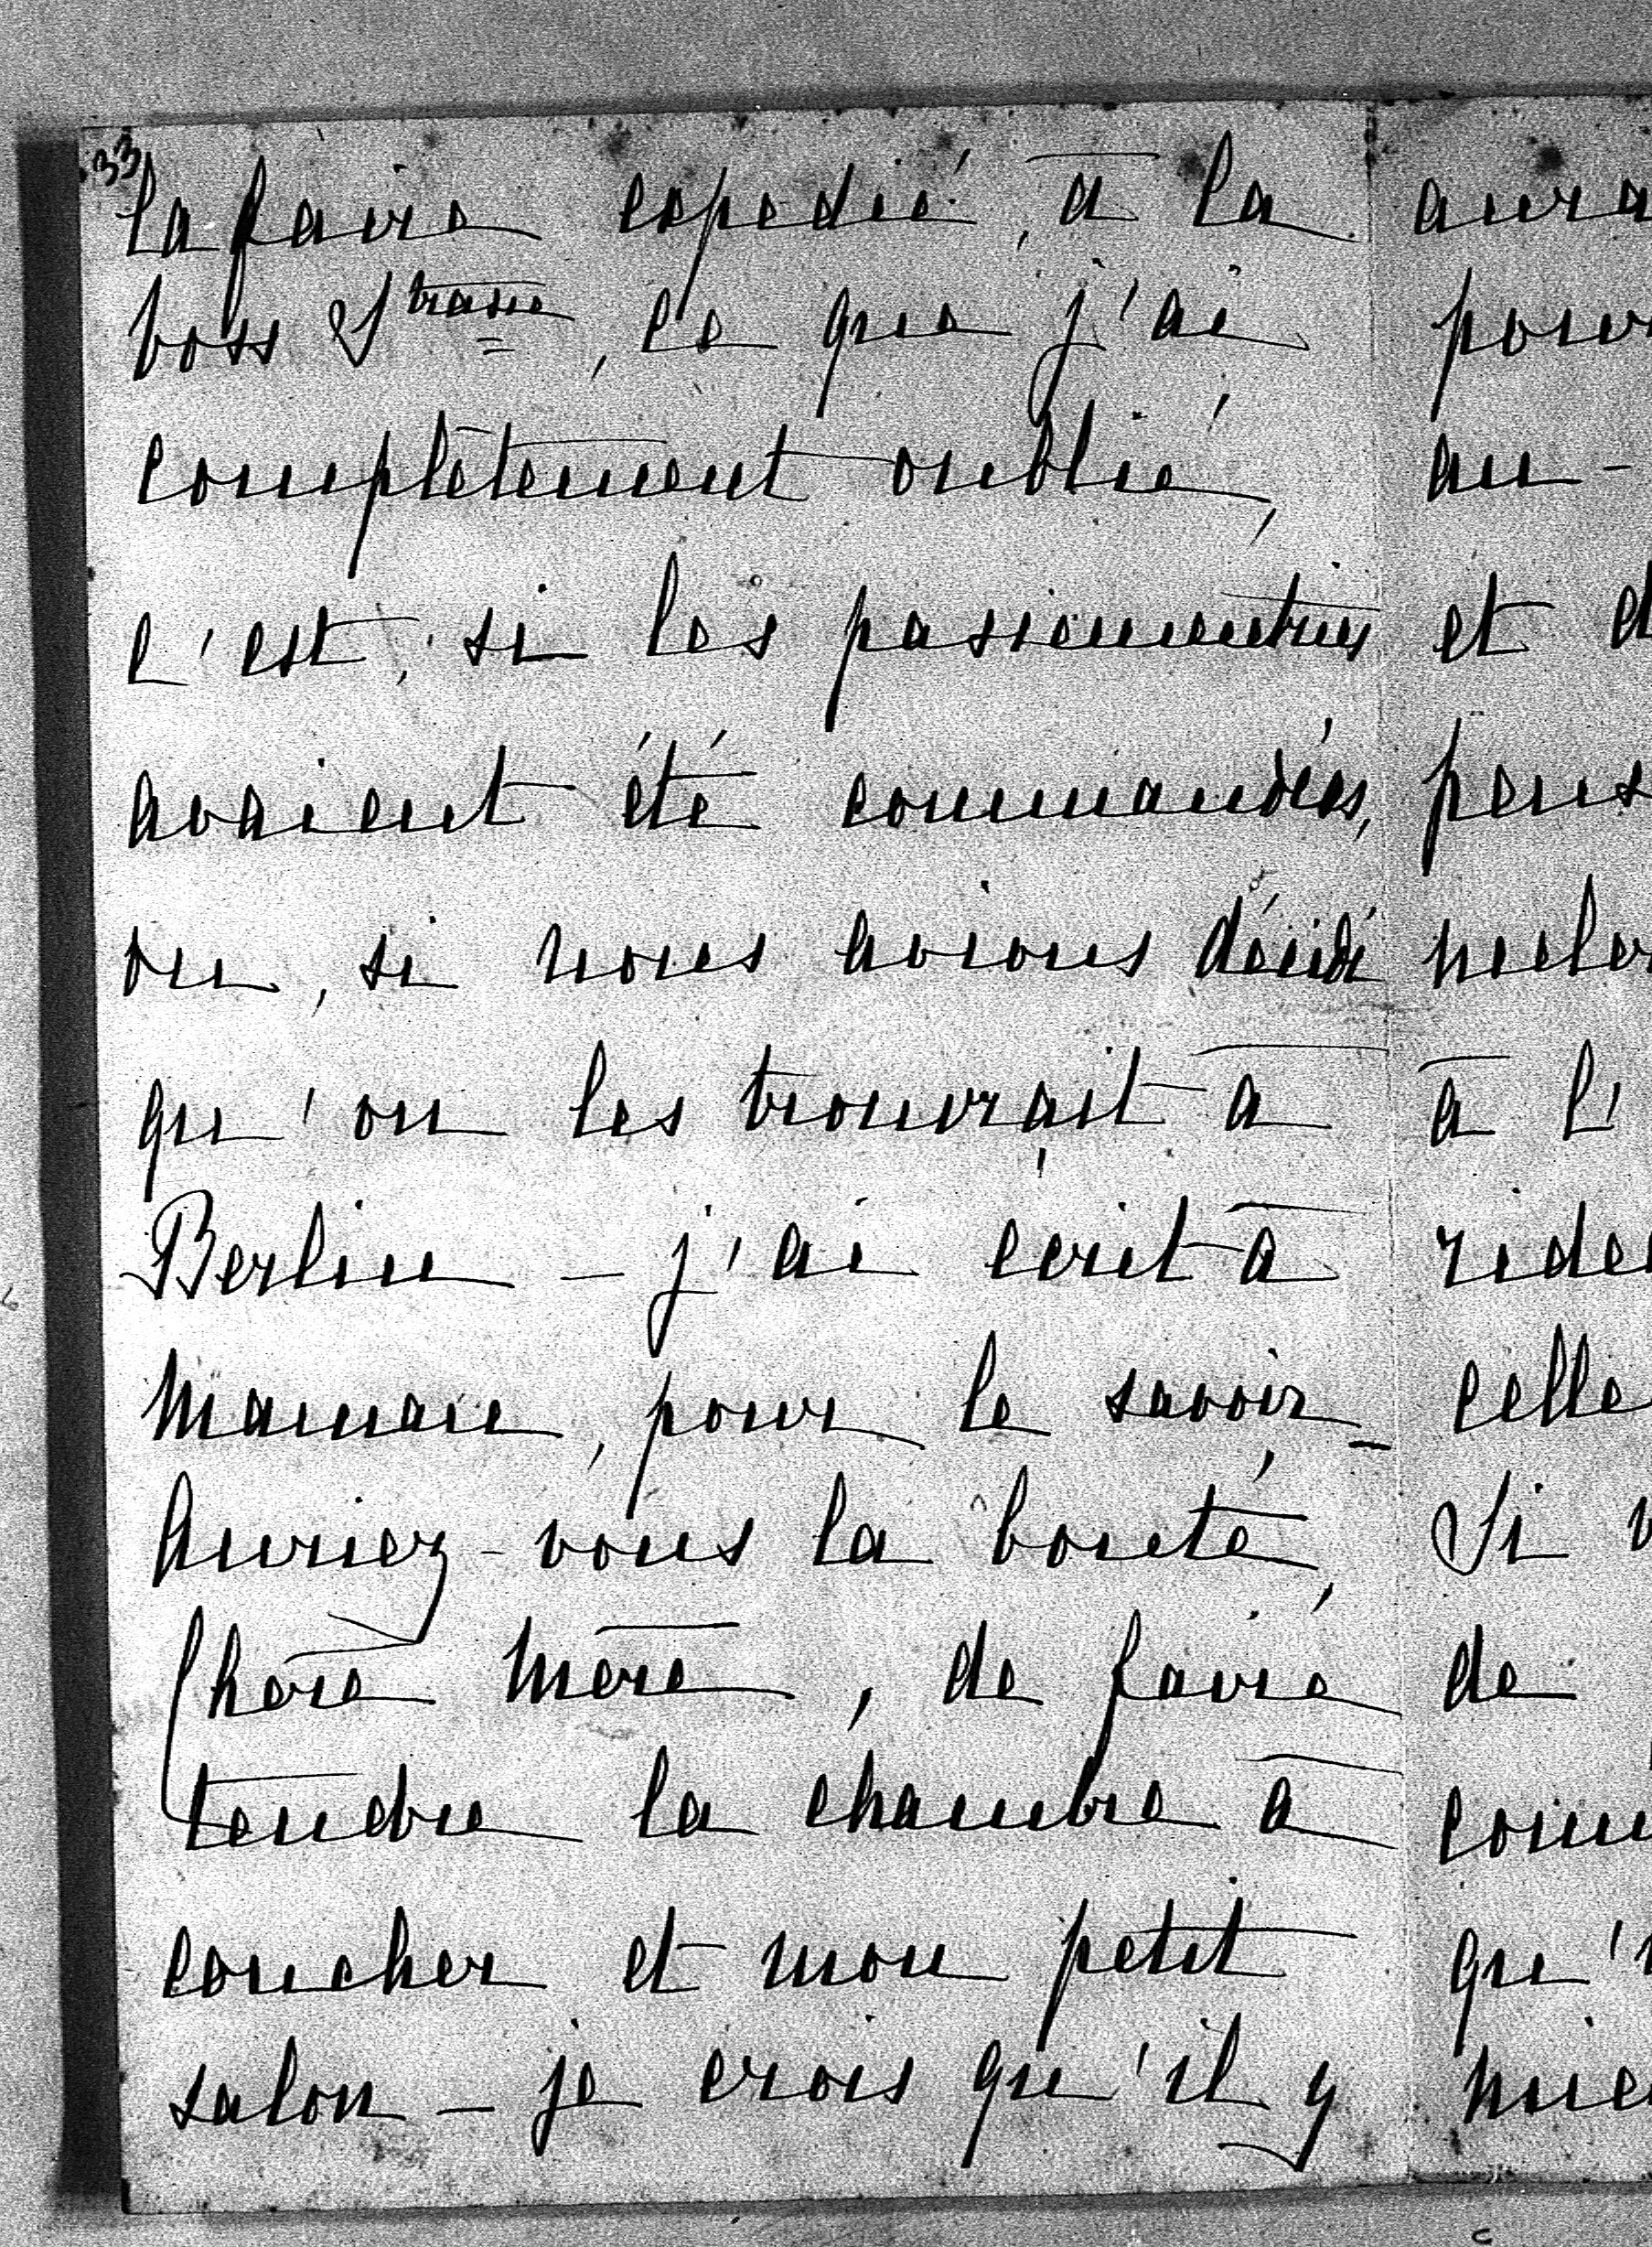 33
la faire expedié, à la
Voss Strasse, ce que j'ai
complètement oublié,
c'est, si les passementries
avaient été commandées,
ou, si nous avions décidé
qu'on les trouvrait à
Berlin — j'ai écrit à
Maman, pour le savoir —
Auriez-vous la bonté,
Chère Mère, de faire
tendre la chambre à
coucher et mon petit
salon — je crois qu'il y
aura
pour
au-
et
pens
à l'
ride
celle
Si
de
qu'